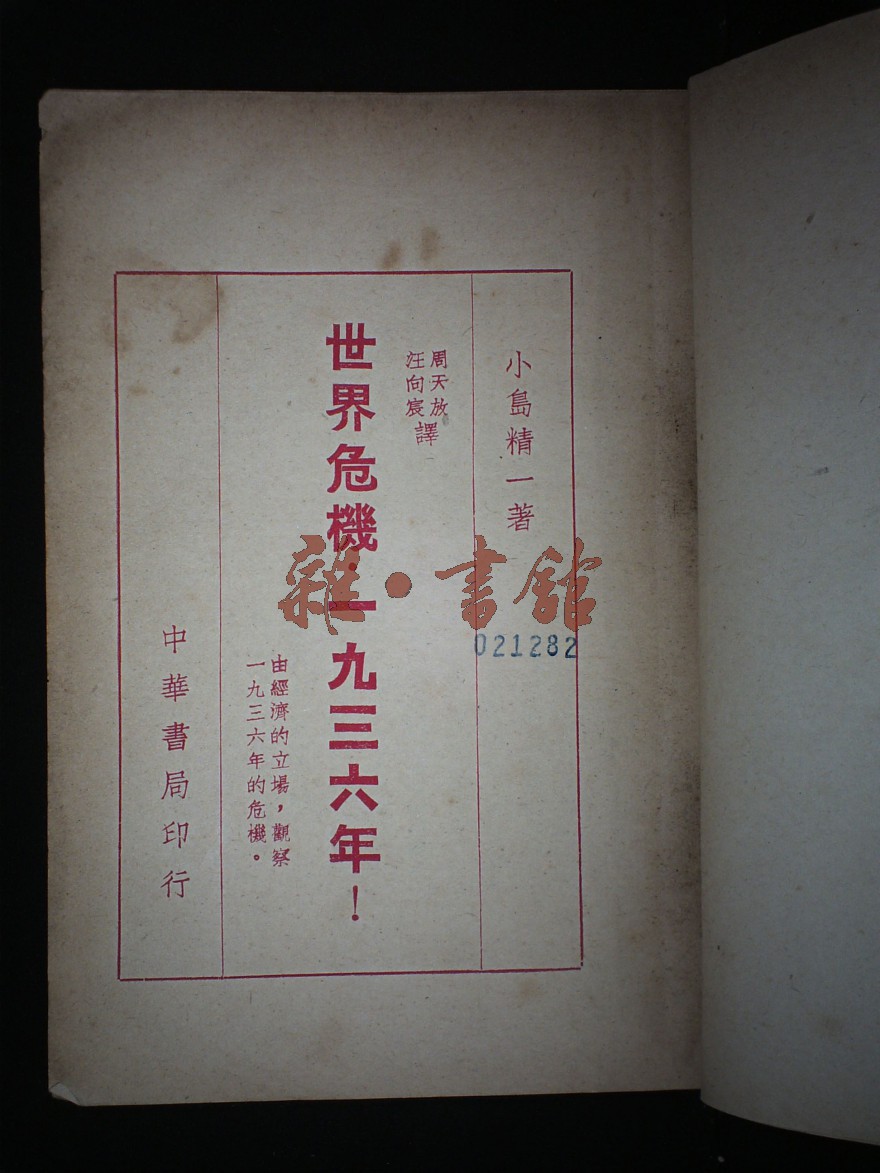 小島精一著
周天放
汪向宸譯
世界危機·一九三六年！
由經濟的立場，觀察
一九三六年的危機。
中華書局印行
雜·書館
021282